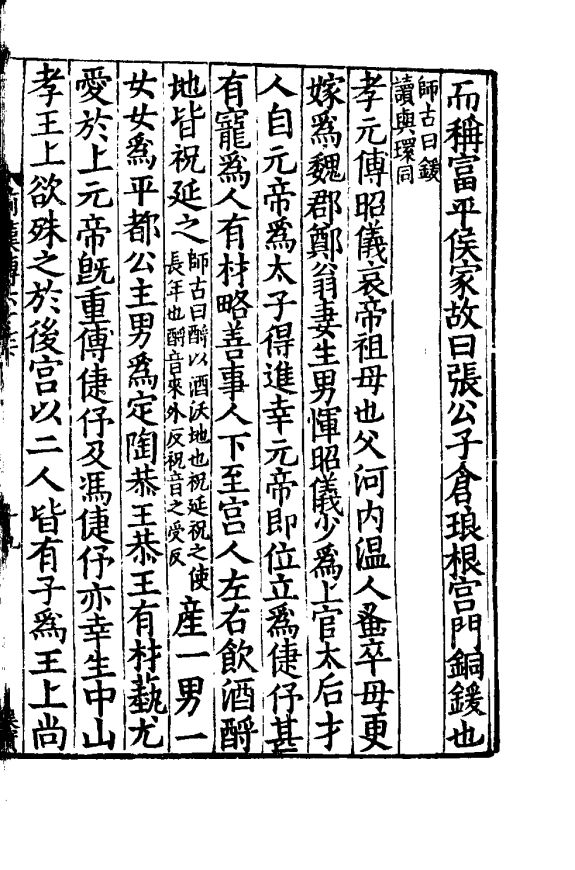 而稱富平侯家故曰張公子倉琅根宮門銅鍰也
師古曰鍰
讀與環同
孝元傅昭儀哀帝祖母也父河内溫人蚤卒母更
嫁爲魏郡鄭翁妻生男惲昭儀少爲上官太后才
人自元帝爲太子得進幸元帝即位立爲倢伃甚
有寵爲人有材略善事人下至宮人左右飲酒酹
地皆祝延之
師古曰酹以酒沃地也祝延祝之使
長年也酹音來外反祝音之受反
産一男一
女女爲平都公主男爲定陶恭王恭王有材藝尤
愛於上元帝旣重傅倢伃及馮倢伃亦幸生中山
孝王上欲殊之於後宮以二人皆有子爲王上尚